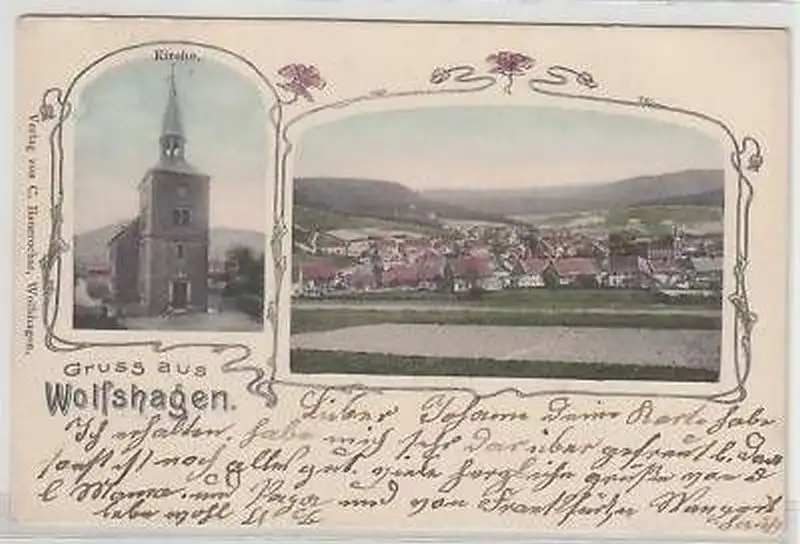 Kirche.
Verlag von C. Wolfshagen.
Gruss aus
Wolfshagen.
Lieber Johann deine Karte habe
Ich erhalten, habe mich sehr darüber gefreut
sonst ist noch alles gut. viele herzliche grüße von
Mama und Papa und von Frankfurter
lebe wohl